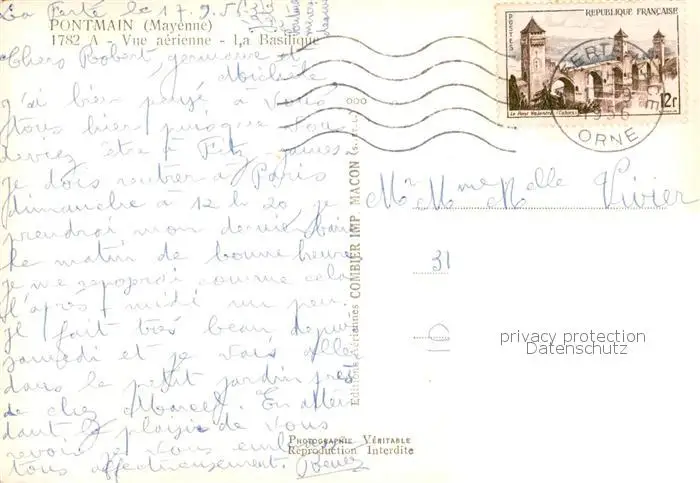 La Ferté le 17.9.5
PONTMAIN (Mayenne)
1782 A - Vue aérienne - La Basilique
Chers Robert, germaine et
Michele
j'ai bien pensé à vous
tous hier puisque vous
devriez être à Fitz James
je dois rentrer à Paris
dimanche à 12 h 20 je
prendrai mon dernier bain
le matin de bonne heure
je me reposerai comme cela
l'après midi un peu.
je fait très beau depuis
samedi et je vais aller
dans le petit jardin près
de chez Marcel. En atten
dant le plaisir de vous
revoir je vous embrasse
tous affectueusement.
Editions Aériennes COMBIER IMP. MACON (S.-et-L.)
RÉPUBLIQUE FRANÇAISE
POSTES
12F
Le Pont Valentré - Cahors
1956
ORNE
Mr Mme Melle Vivier
31
privacy protection
Datenschutz
PHOTOGRAPHIE VÉRITABLE
Reproduction Interdite